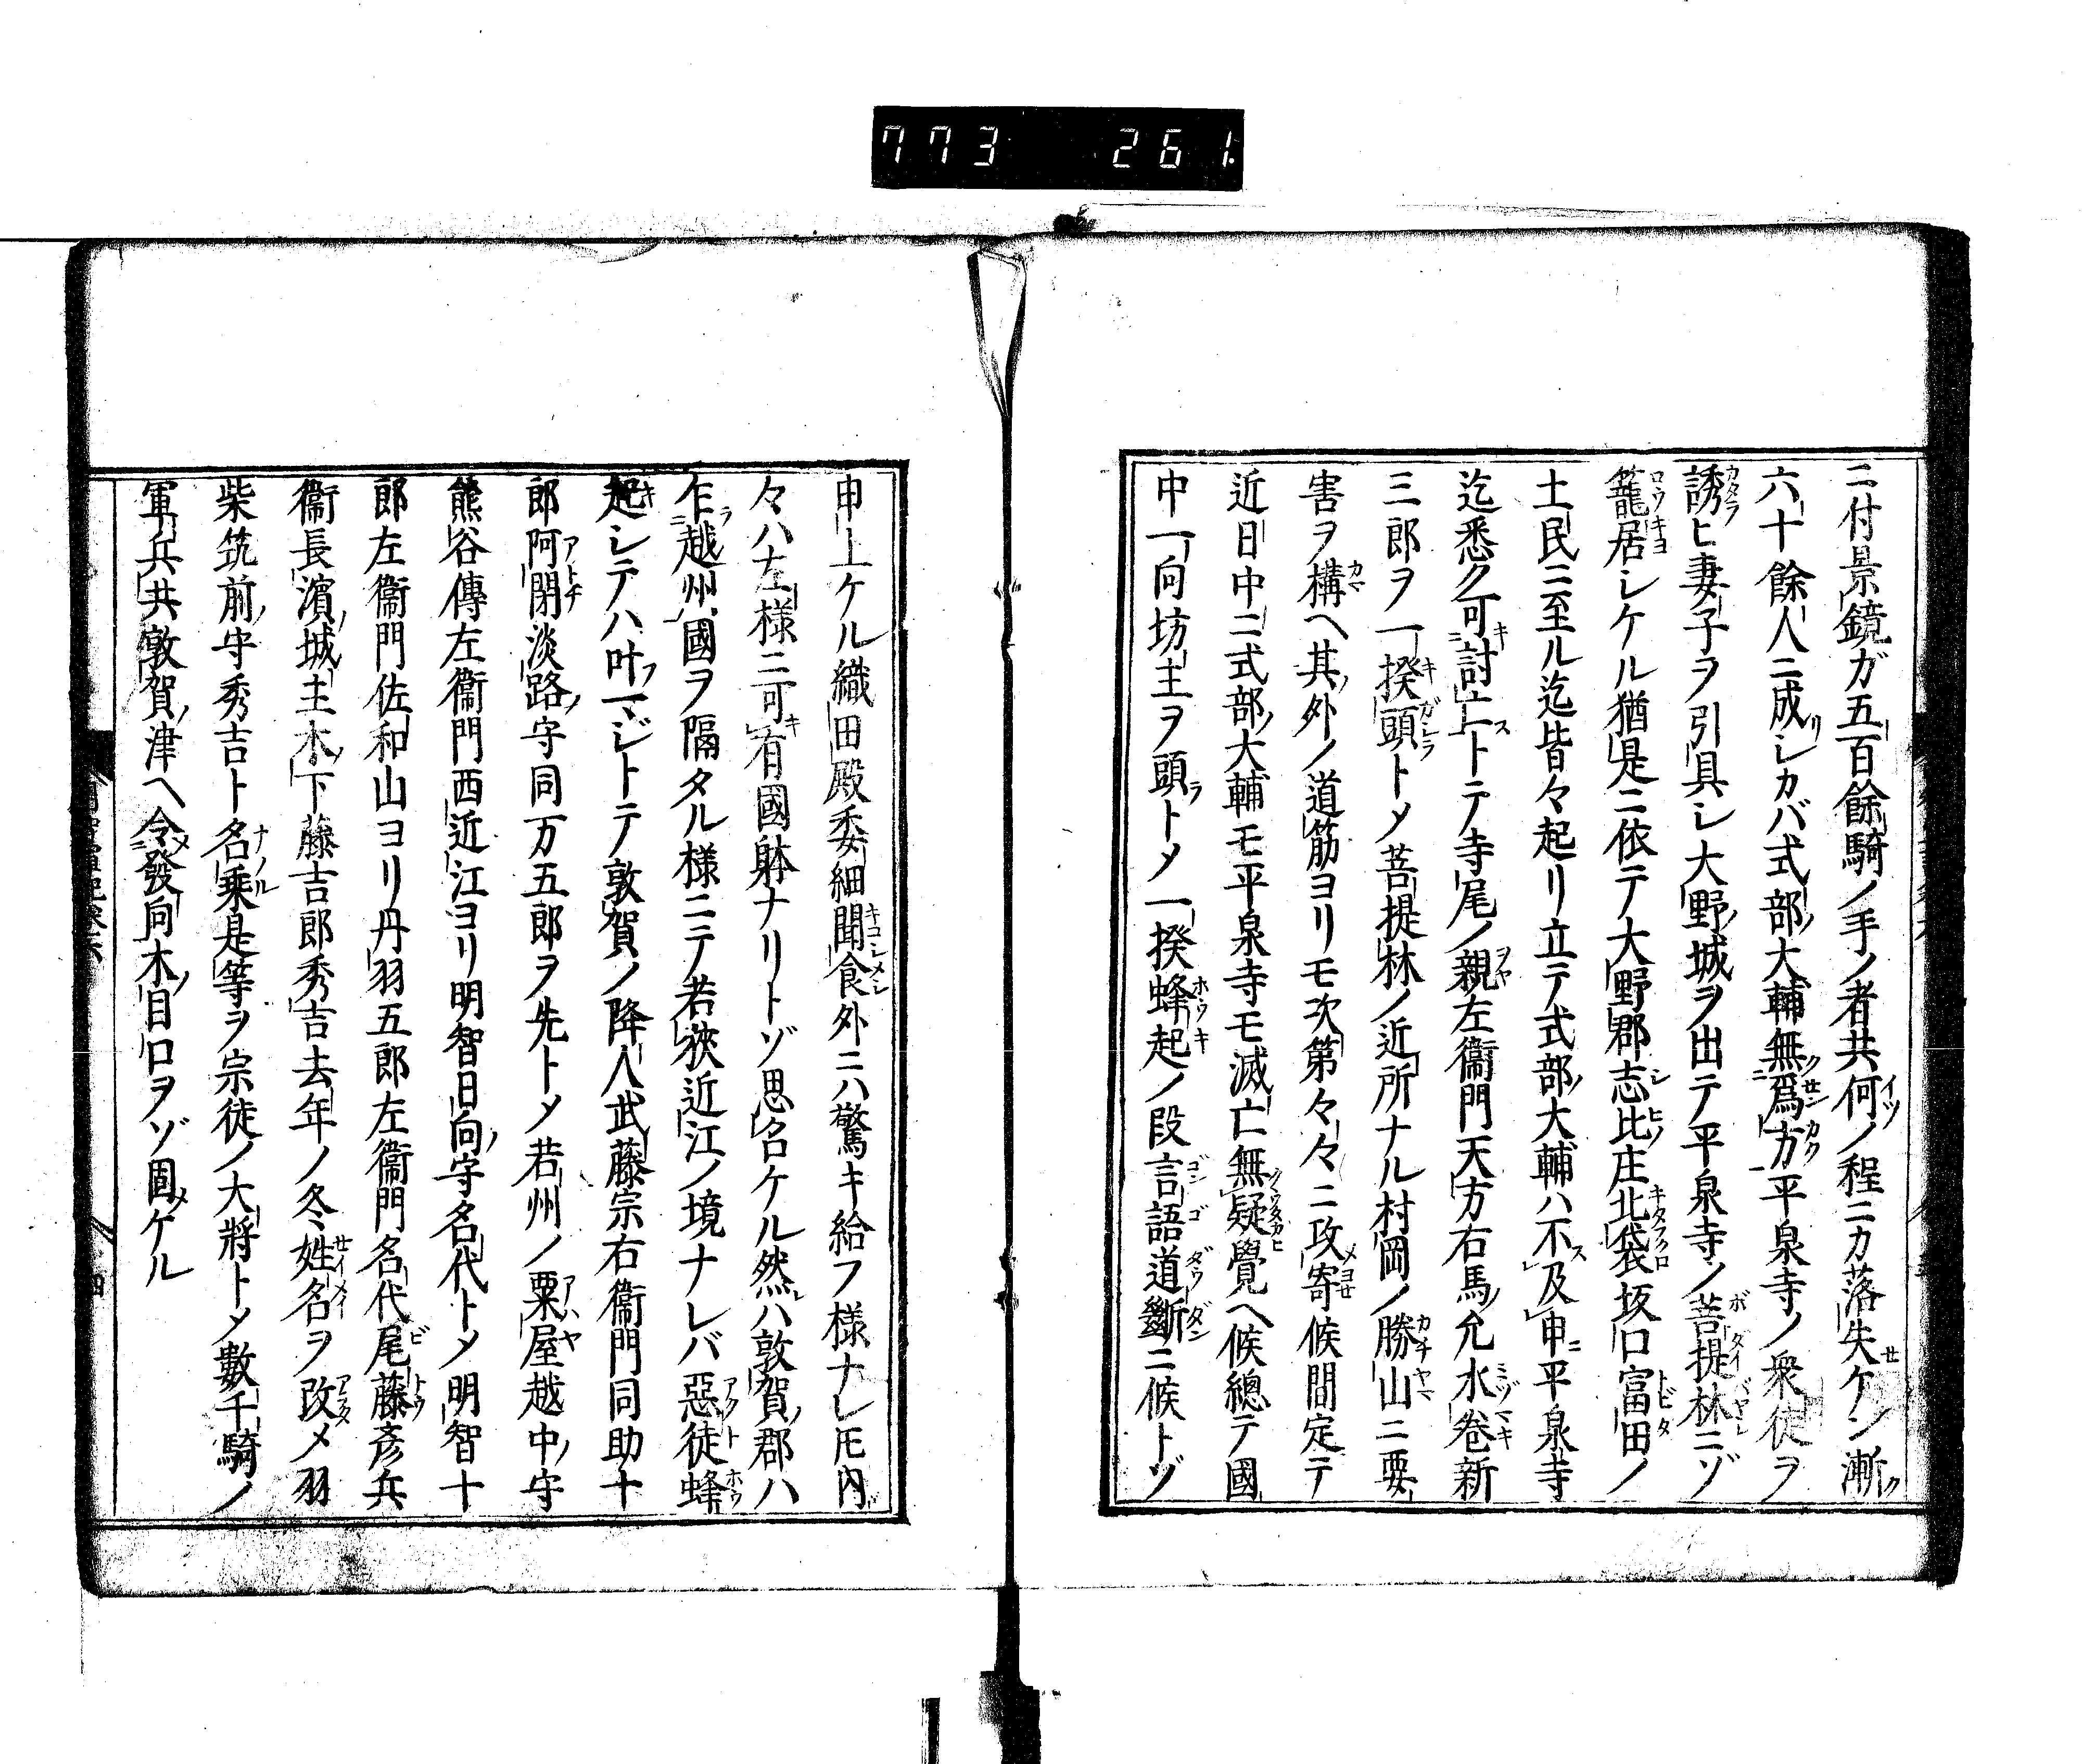 773 261
ニ付景鏡ガ五百餘騎ノ手ノ者共何ノ程ニカ落失ケン漸
六十餘人ニ成シカバ式部大輔無爲方平泉寺ノ衆徒ヲ
誘ヒ妻子ヲ引具シ大野城ヲ出テ平泉寺ノ菩提林ニゾ
籠居シケル猶是ニ依テ大野郡志比庄北袋坂口富田ノ
土民ニ至ル迄皆々起リ立テ式部大輔ハ不及申平泉寺
迄悉ク可討亡トテ寺尾ノ親左衞門天方右馬允水卷新
三郎ヲ一揆頭トメ菩提林ノ近所ナル村岡ノ勝山ニ要
害ヲ構ヘ其外ノ道筋ヨリモ次第々々ニ攻寄候間定テ
近日中ニ式部大輔モ平泉寺モ滅亡無疑覺ヘ候總テ國
中一向坊主ヲ頭トメ一揆蜂起ノ段言語道斷ニ候トゾ
申上ケル織田殿委細聞食外ニハ驚キ給フ樣ナレ𪜈內
々ハ左樣ニ可有國躰ナリトゾ思召ケル然ハ敦賀郡ハ
乍越州國ヲ隔タル樣ニテ若狹近江ノ境ナレバ惡徒蜂
起シテハ叶マジトテ敦賀ノ降人武藤宗右衞門同助十
郎阿閉淡路守同万五郎ヲ先トメ若州ノ粟屋越中守
熊谷傳左衞門西近江ヨリ明智日向守名代トメ明智十
郎左衞門佐和山ヨリ丹羽五郎左衞門名代尾藤彥兵
衞長濱城主木下藤吉郎秀吉去年ノ冬姓名ヲ改メ羽
柴筑前守秀吉ト名乘是等ヲ宗徒ノ大將トメ數千騎ノ
軍兵共敦賀津ヘ令發向木目口ヲゾ固メケル